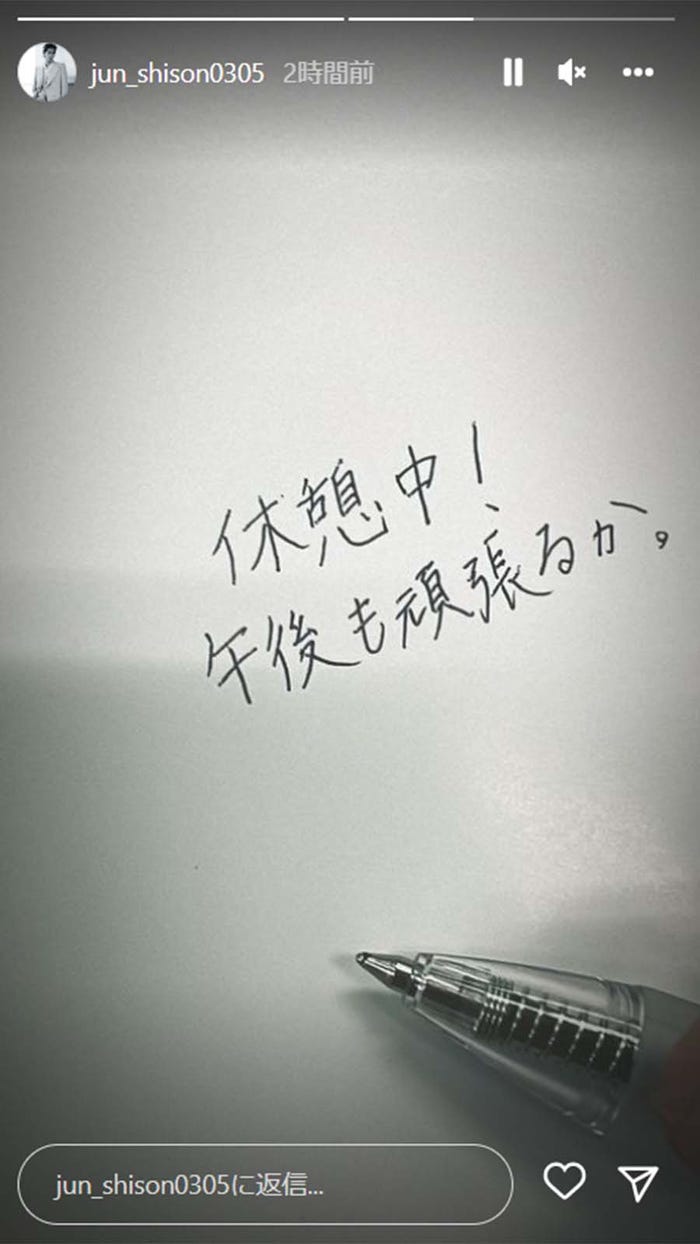 jun_shison0305 2時間前
休憩中!
午後も頑張るか。
jun_shison0305に返信...